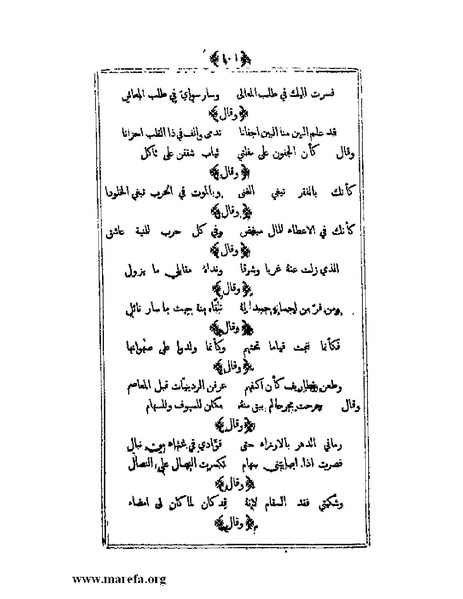 ﴿١٠١﴾
فسرت اليك في طلب المعالي وسار سواي في طلب المعاش
﴿وقال﴾
قد علم البين منا البين اجفانا تدمى والف في ذا القلب احزانا
وقال كأن الجفون على مقلتي ثياب شققن على ثاكل
﴿وقال﴾
كأنك بالفقر تبغي الغنى وبالموت في الحرب تبغي الخلودا
﴿وقال﴾
كأنك في الاعطاء للمال مبغض وفي كل حرب للمنية عاشق
﴿وقال﴾
الذي زلت عنه غربا وشرقا ونداه مقابلي ما يزول
﴿وقال﴾
ومن فر من احسانه حسدا له تلقاه منه حيث ما سار نائل
﴿وقال﴾
فكأنما نتجت قياما تحتهم وكأنما ولدوا على صهواتها
﴿وقال﴾
وطعن غطاريف كأن اكفهم عرفن الردينيات قبل المعاصم
وقال جرحت مجرحا لم يبق منه مكان للسيوف وللسهام
﴿وقال﴾
رماني الدهر بالارزاء حتى فؤادي في غشاء من نبال
فصرت اذا اصابتني سهام تكسرت النصال على النصال
﴿وقال﴾
وشكيتي فقد السقام لانه قد كان لما كان لي اعضاء
﴿وقال﴾
www.marefa.org